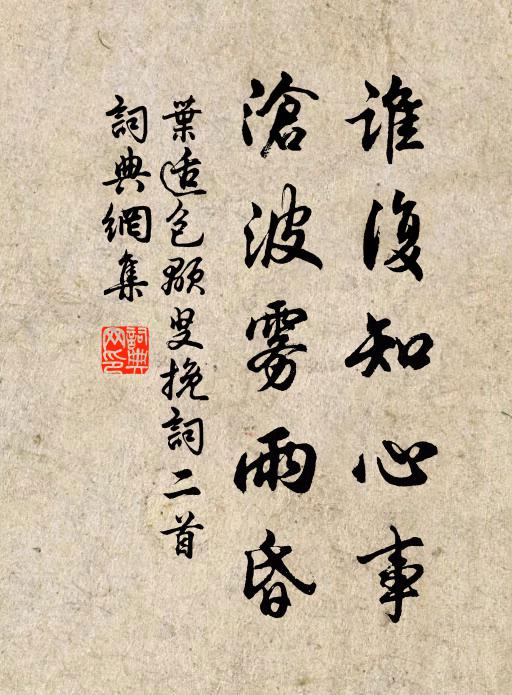 誰復知心事
滄波雾雨昏
葉适包顒叟挽詞二首
詞典網集
詞典网印